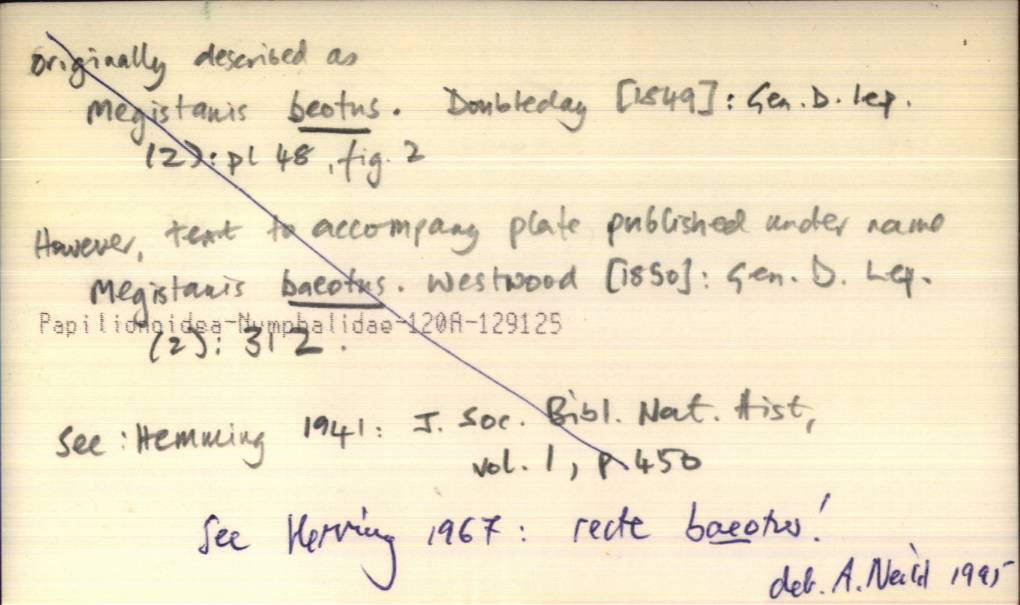 Originally described as
Megistanis beotus. Doubleday [1849]: Gen. D. Lep.
(2): pl 48, fig. 2
However, text to accompany plate published under name
Megistanis baeotus. Westwood [1850]: Gen. D. Lep.
Papilionoidea-Nymphalidae-120A-129125
(2): 312.
See: Hemming 1941: J. Soc. Bibl. Nat. Hist,
vol. 1, p 450
See Herving 1967: recte baeotus!
det. A. Neild 1995